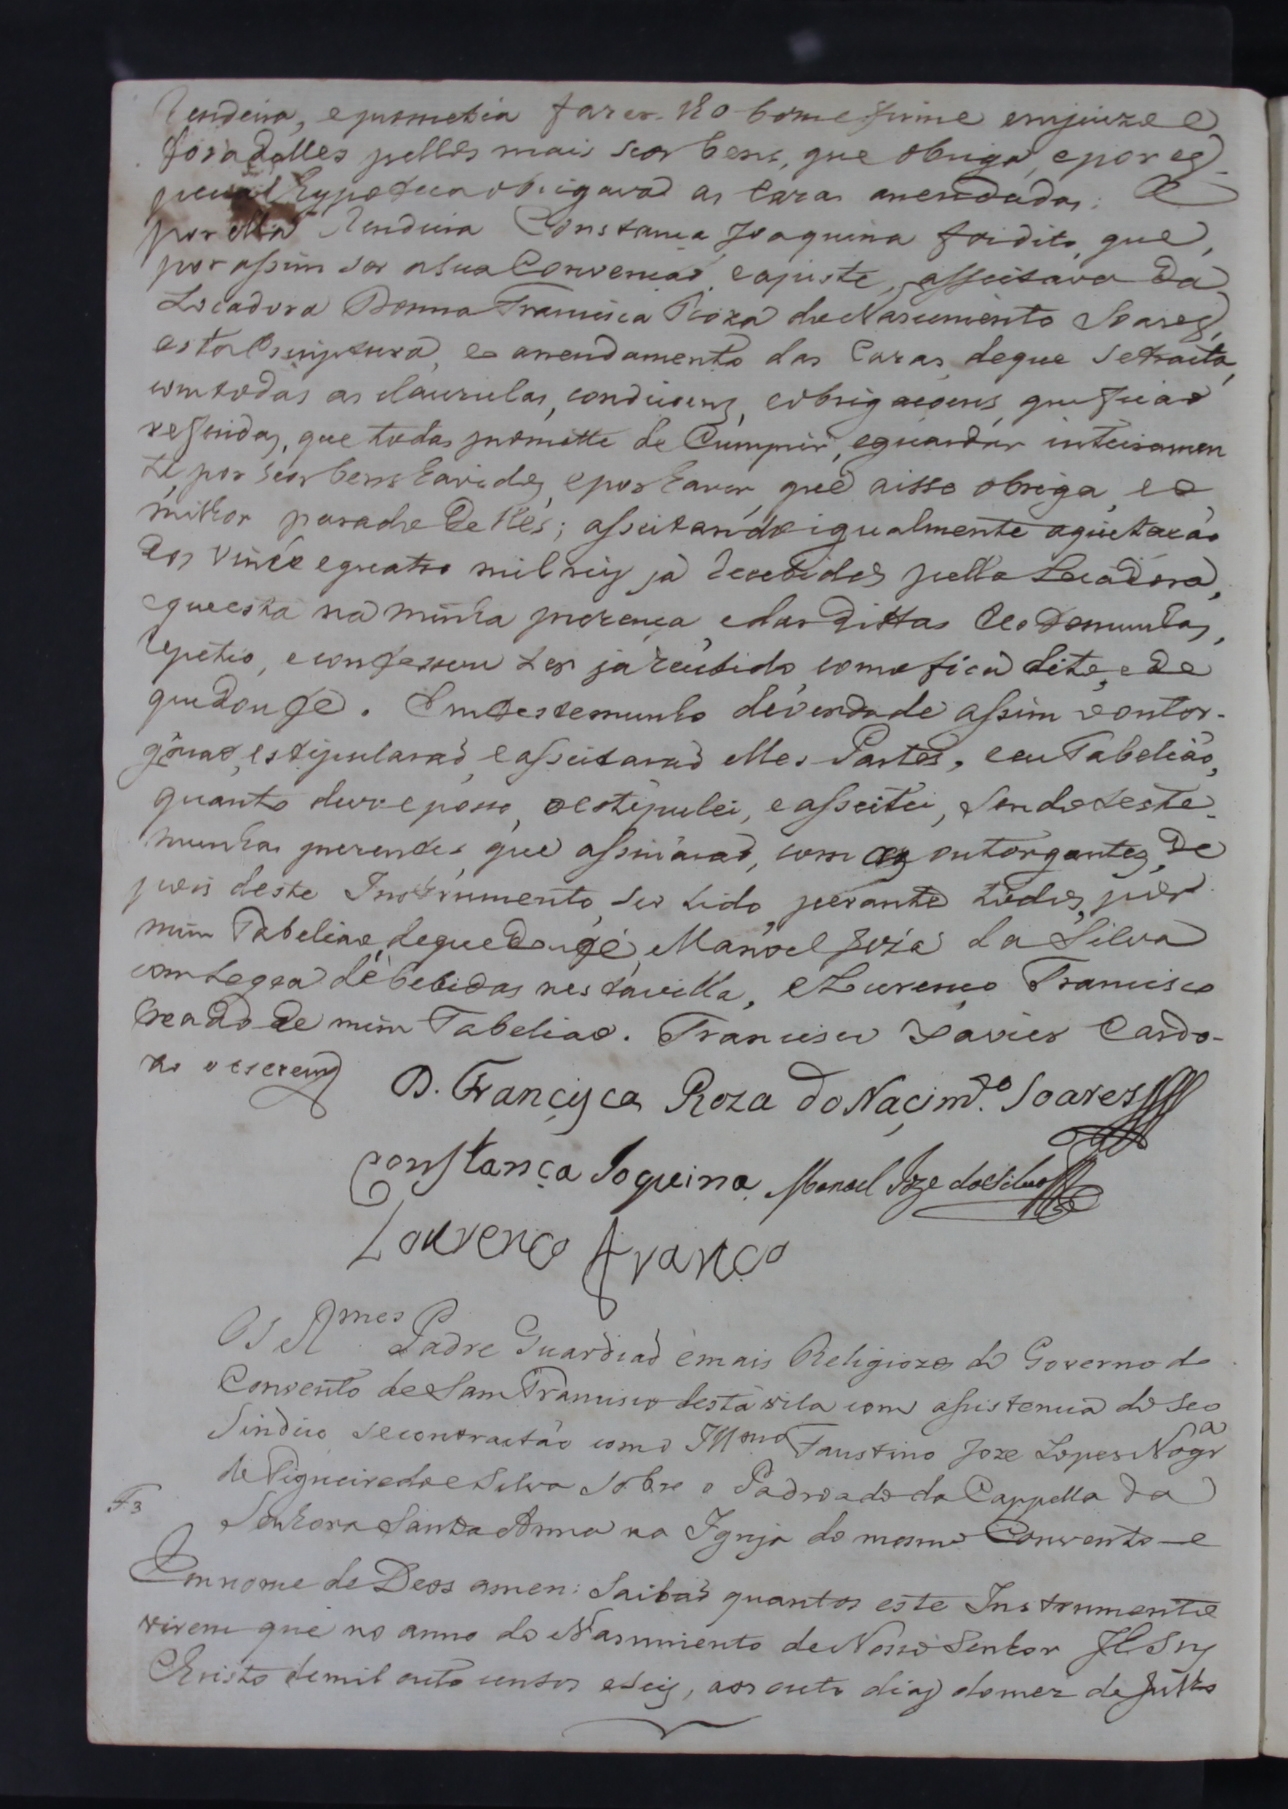 Rendeira, e prometia fazer tão bom e firme em juizo e
fora delles pellos mais seos bens, que obriga, e por es-
pecial Hypoteca obrigavaõ as Cazas arrendadas: E
por ella Rendeira Constança Joaquina foi dito, que,
por assim ser a sua Convençaõ, e ajuste, asseitava da
Locadora Donna Francisca Roza do Nascimento Soares,
esta Escriptura, e o arrendamento das Cazas, de que se tracta,
com todas as clauzulas, condiçoens, e obrigaçoens, que ficaõ
referidas, que todas promette de Cumprir, e guardar inteiramen
te, por seos bens havidos, e por haver, que a isso obriga, e o
milhor parado delles; asseitando igualmente a quitaçaõ
dos vinte e quatro mil reis já recebidos pella Locadora,
e que esta na minha prezença, e das dittas Testemunhas,
repetio, e confessou ter já recebido, como fica dito, e de
que dou fé. Em testemunho de verdade assim o outor-
gáraõ, estipularaõ, e asseitaraõ elles Partes, e eu Tabeliaõ,
quanto devo e posso, o estipulei, e asseitei, sendo teste-
munhas prezentes, que assináraõ, com os outorgantes, de
pois deste Instrumento, ser lido, perante todos, por
mim Tabeliaõ, de que dou fé, Manoel Jozé da Silva
com logea de bebidas nesta villa, e Lourenço Francisco
Creado de mim Tabeliaõ. Francisco Xavier Cardo-
zo o escrevy
D. Françisca Roza do Naçimᵗᵒ. Soares
Constança Joquina Manoel Joze da Silva
Lourenço Franço
Os Rᵐᵉˢ Padre Guardiaõ e mais Religiozos do Governo do
Convento de Sam Francisco desta vila com assistencia do Seo
Sindico se contractão com o Illᵐᵒ Faustino Joze Lopes Nogrᵃ
de Figueiredo e Silva sobre o Padroado da Cappella da
F 3
Senhora Santa Anna na Igreja do mesmo Convento e
Em nome de Deos amen: Saibaõ quantos este Instrumento
virem que no anno do Nascimento de Nosso Senhor JESus
Christo de mil outo centos e seis, aos outo dias do mez de Julho